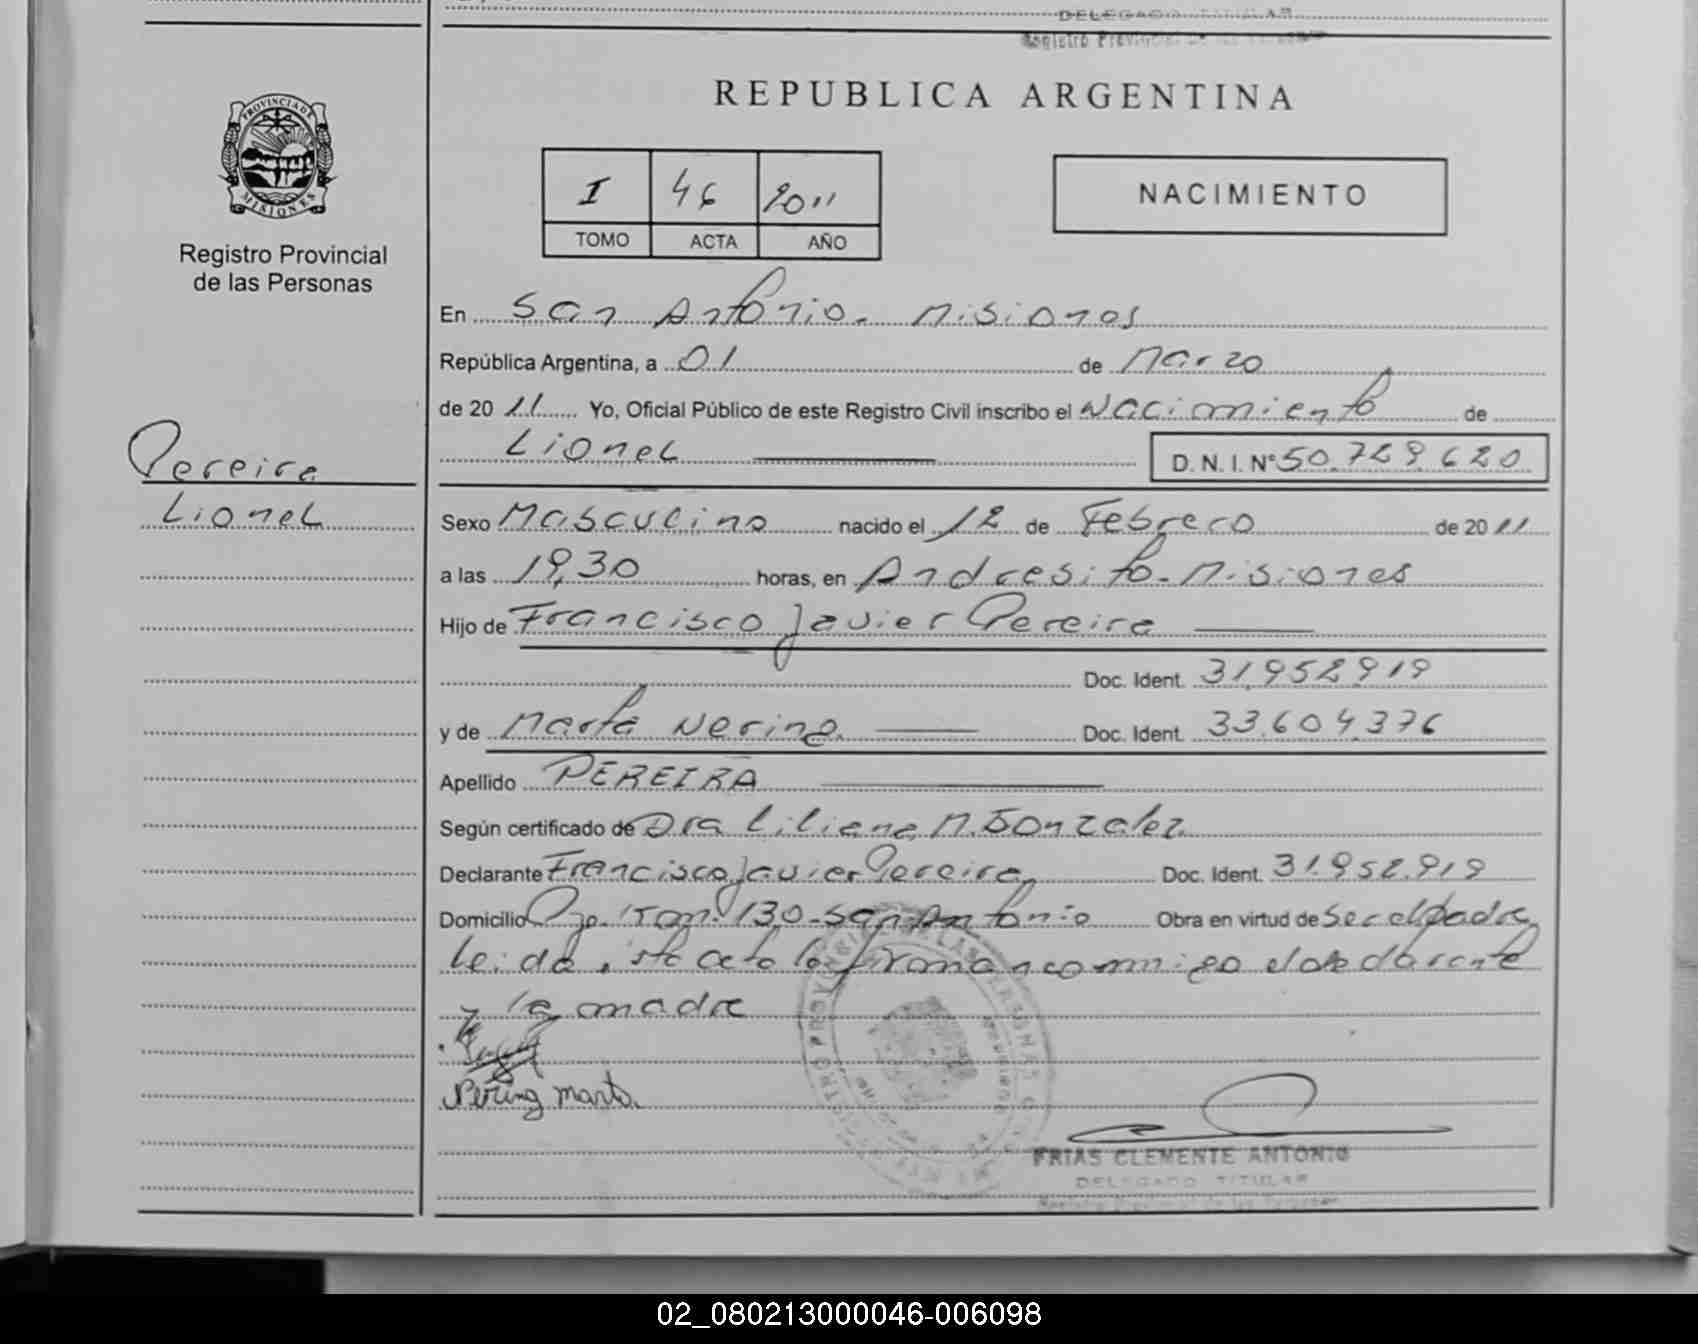 DELEGADO TITULAR
Registro Provincial de las Personas
PROVINCIA DE MISIONES
Registro Provincial
de las Personas
REPUBLICA ARGENTINA
I 46 2011
TOMO ACTA AÑO
NACIMIENTO
En San Antonio - Misiones
República Argentina, a 01 de Marzo
de 2011 Yo, Oficial Público de este Registro Civil inscribo el Nacimiento de
Lionel D.N.I. Nº 50.729.620
Pereira
Lionel
Sexo Masculino nacido el 12 de Febrero de 2011
a las 19,30 horas, en Andresito - Misiones
Hijo de Francisco Javier Pereira
Doc. Ident. 31.952.919
y de Marta Nerina Doc. Ident. 33.604.376
Apellido PEREIRA
Según certificado de Dra Liliana M. Gonzalez
Declarante Francisco Javier Pereira Doc. Ident. 31.952.919
Domicilio Pje. Km. 130 - San Antonio Obra en virtud de Ser el padre
Leida esta acta la firman conmigo el declarante
y la madre
Nering marta
FRIAS CLEMENTE ANTONIO
DELEGADO TITULAR
Registro Provincial de las Personas
02_080213000046-006098